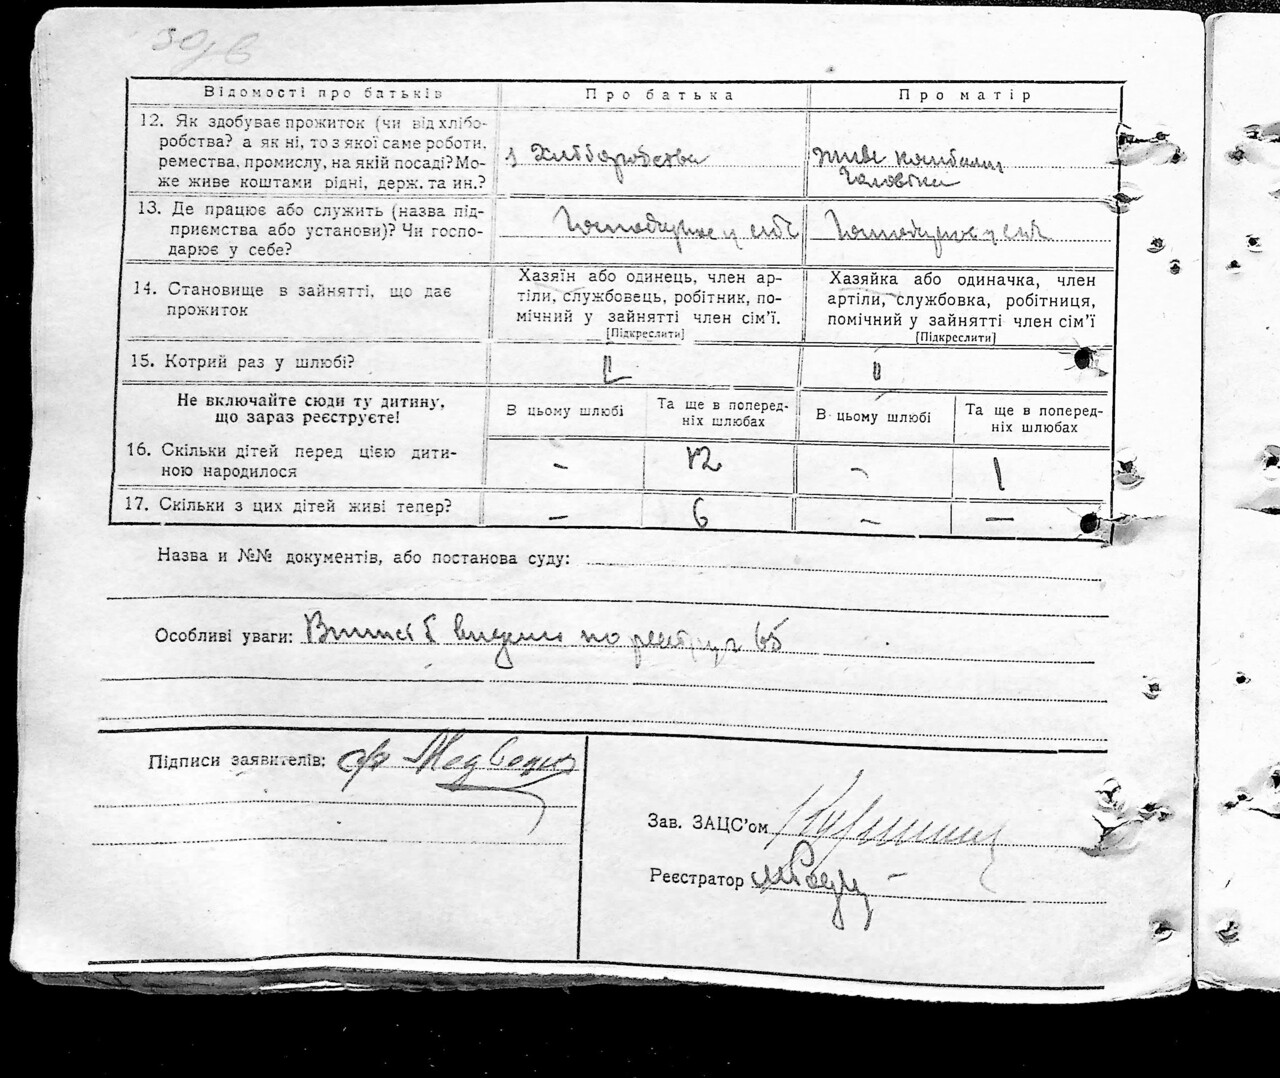 30, в
Відомості про батьків
Про батька
Про матір
12. Як здобуває прожиток (чи від хлібо-
робства? а як ні, то з якої саме роботи,
ремества, промислу, на якій посаді? Мо-
же живе коштами рідні, держ. та ин.?
з Хліборобства
живе коштами
чоловіка
13. Де працює або служить (назва під-
приємства або установи)? Чи госпо-
дарює у себе?
Господарює у себе
Господарює у себе
14. Становище в зайнятті, що дає
прожиток
Хазяїн або одинець, член ар-
тіли, службовець, робітник, по-
мічний у зайнятті член сім'ї.
[Підкреслити]
Хазяйка або одиначка, член
артіли, службовка, робітниця,
помічний у зайнятті член сім'ї
[Підкреслити]
15. Котрий раз у шлюбі?
II
II
Не включайте сюди ту дитину,
що зараз реєструєте!
В цьому шлюбі
Та ще в поперед-
ніх шлюбах
В цьому шлюбі
Та ще в поперед-
ніх шлюбах
16. Скільки дітей перед цією дити-
ною народилося
–
12
–
1
17. Скільки з цих дітей живі тепер?
–
6
–
–
Назва и №№ документів, або постанова суду:
Особливі уваги: видано по реєстру 65
Підписи заявителів:
Зав. ЗАЦС'ом
Реєстратор